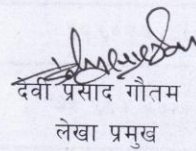 देवी प्रसाद गौतम
लेखा प्रमुख